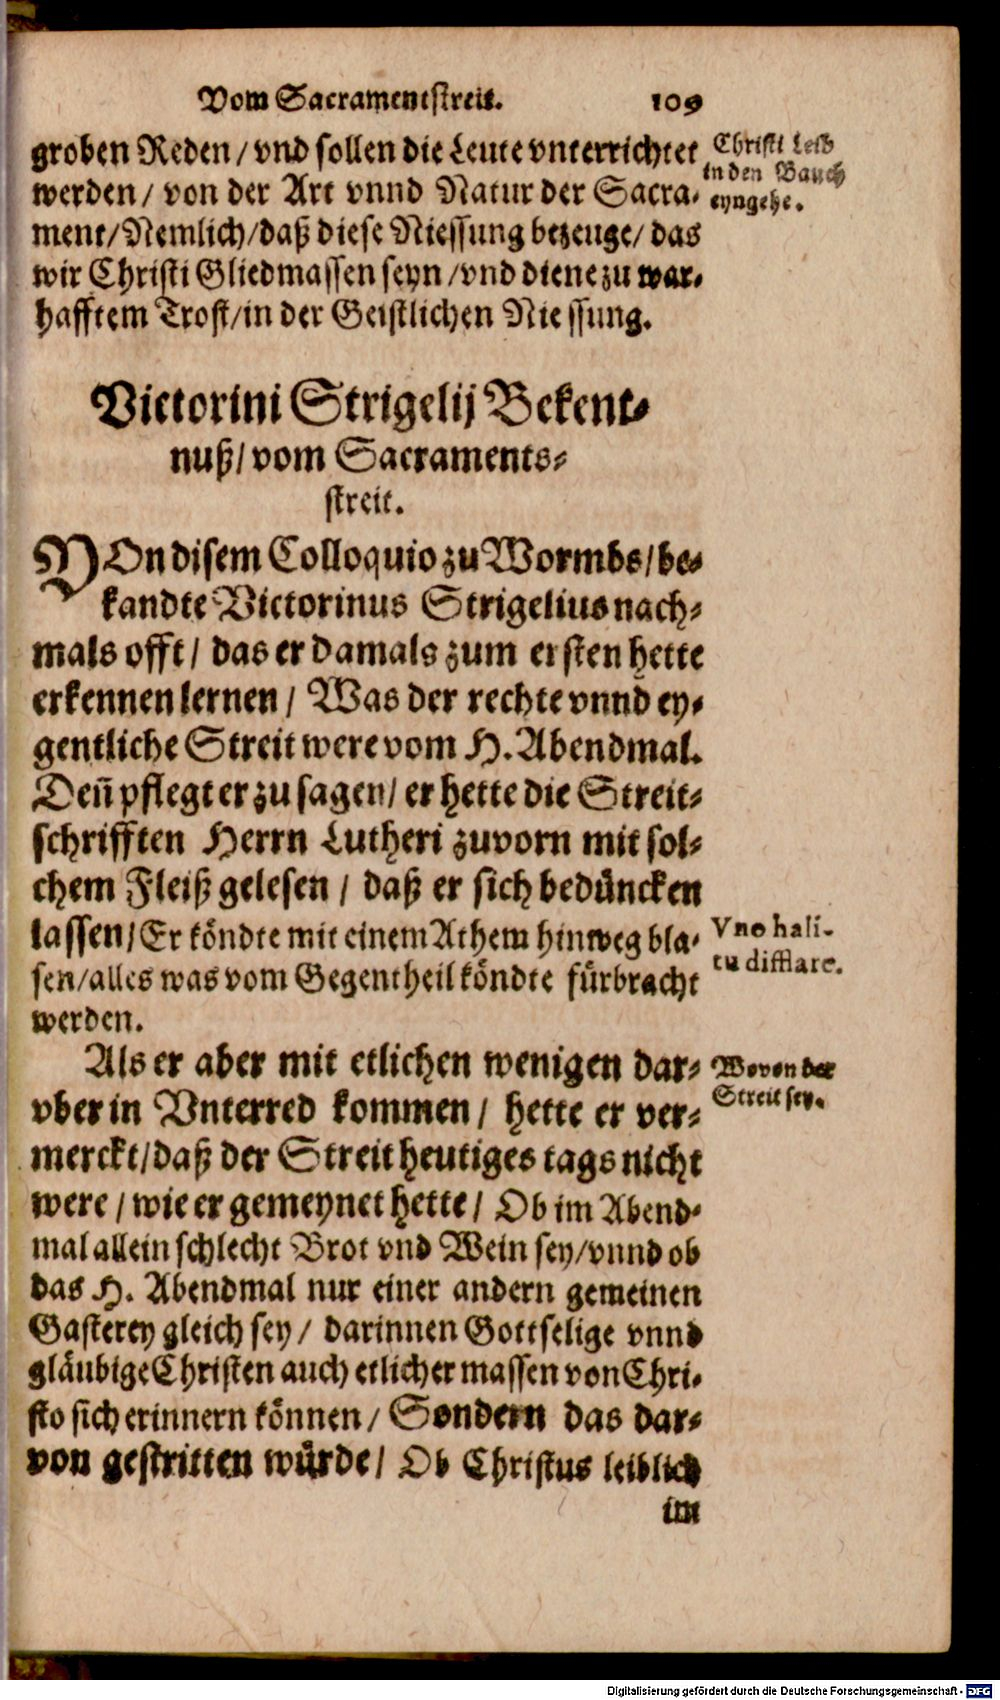 Vom Sacramentstreit. 109
groben Reden / vnd sollen die Leute vnterrichtet
werden / von der Art vnnd Natur der Sacra-
ment / Nemlich / daß diese Niessung bezeuge / das
wir Christi Gliedmassen seyn / vnd diene zu war-
hafftem Trost / in der Geistlichen Niessung.
Christi Leib
in den Bauch
eyngehe.
Victorini Strigelij Bekent-
nuß / vom Sacraments-
streit.
VOn disem Colloquio zu Wormbs / be-
kandte Victorinus Strigelius nach-
mals offt / das er damals zum ersten hette
erkennen lernen / Was der rechte vnnd ey-
gentliche Streit were vom H. Abendmal.
Deñ pflegt er zu sagen / er hette die Streit-
schrifften Herrn Lutheri zuvorn mit sol-
chem Fleiß gelesen / daß er sich bedüncken
lassen / Er köndte mit einem Athem hinweg bla-
sen / alles was vom Gegentheil köndte fürbracht
werden.
Vno hali-
tu difflare.
Als er aber mit etlichen wenigen dar-
vber in Vnterred kommen / hette er ver-
merckt / daß der Streit heutiges tags nicht
were / wie er gemeynet hette / Ob im Abend-
mal allein schlecht Brot vnd Wein sey / vnnd ob
das H. Abendmal nur einer andern gemeinen
Gasterey gleich sey / darinnen Gottselige vnnd
gläubige Christen auch etlicher massen von Chri-
sto sich erinnern können / Sondern das dar-
von gestritten würde / Ob Christus leiblich
Wovon der
Streit sey.
im
Digitalisierung gefördert durch die Deutsche Forschungsgemeinschaft - DFG